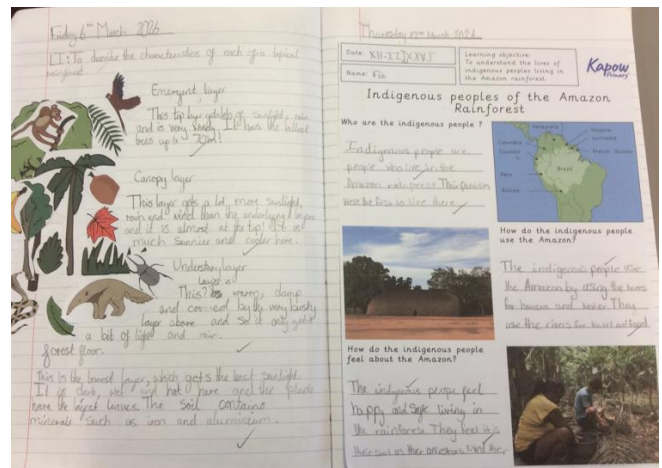 Friday 6th March 2026
LI: To describe the characteristics of each of a topical
rainforest
Emergent layer
This top layer gets lots of sunlight, rain
and is very windy. It has the tallest
trees up to 70m!
Canopy layer
This layer gets a lot more sunlight,
rain and wind than the underlying layers
and it is almost at the top! It is
much sunnier and cooler here.
Understory layer
layer is
This? warm, damp
and covered by the very bushy
layer above and so it only gets
a bit of light and rain.
forest floor.
This is the lowest layer, which gets the least sunlight.
It is dark, wet and hot here and the plants
have the largest leaves. The soil contains
minerals such as iron and aluminium.
Thursday March 2026
Date:
Name:
Learning objective:
To understand the lives of
indigenous peoples living in
the Amazon rainforest.
Kapow
Primary
Indigenous peoples of the Amazon
Rainforest
Who are the indigenous people ?
Indigenous people are
people who live in the
Amazon rainforest. Their families
were the first to live there
Venezuela
Guyana
Suriname
French Guiana
Colombia
Ecuador
Peru
Brazil
Bolivia
How do the indigenous people
use the Amazon?
The indigenous people use
the Amazon by using the trees
for houses and They
use the rivers for travel and food.
How do the indigenous people
feel about the Amazon?
The indigenous people feel
happy and safe living in
the rainforest. They feel it is
as their ancestors lived there